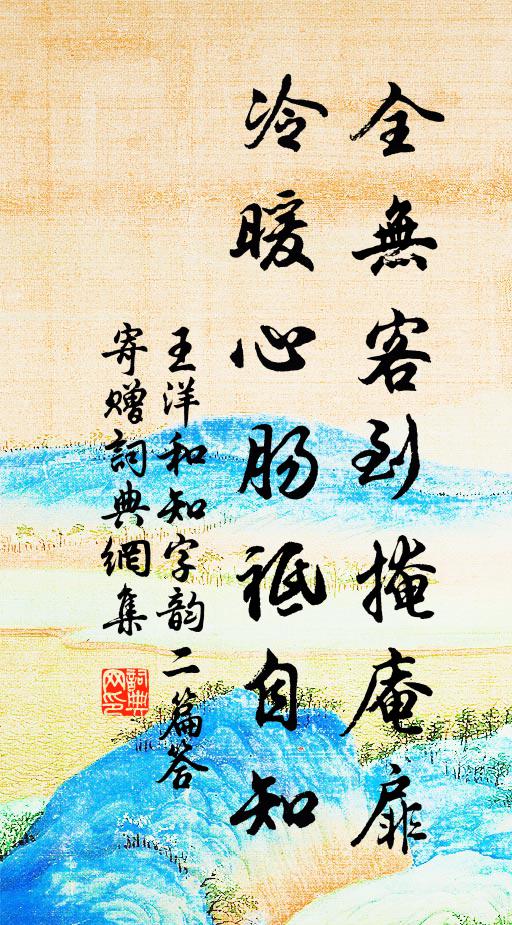 全無客到掩庵扉
冷暖心腸祇自知
王洋和知字韵二篇答
寄贈詞典網集
詞典網印